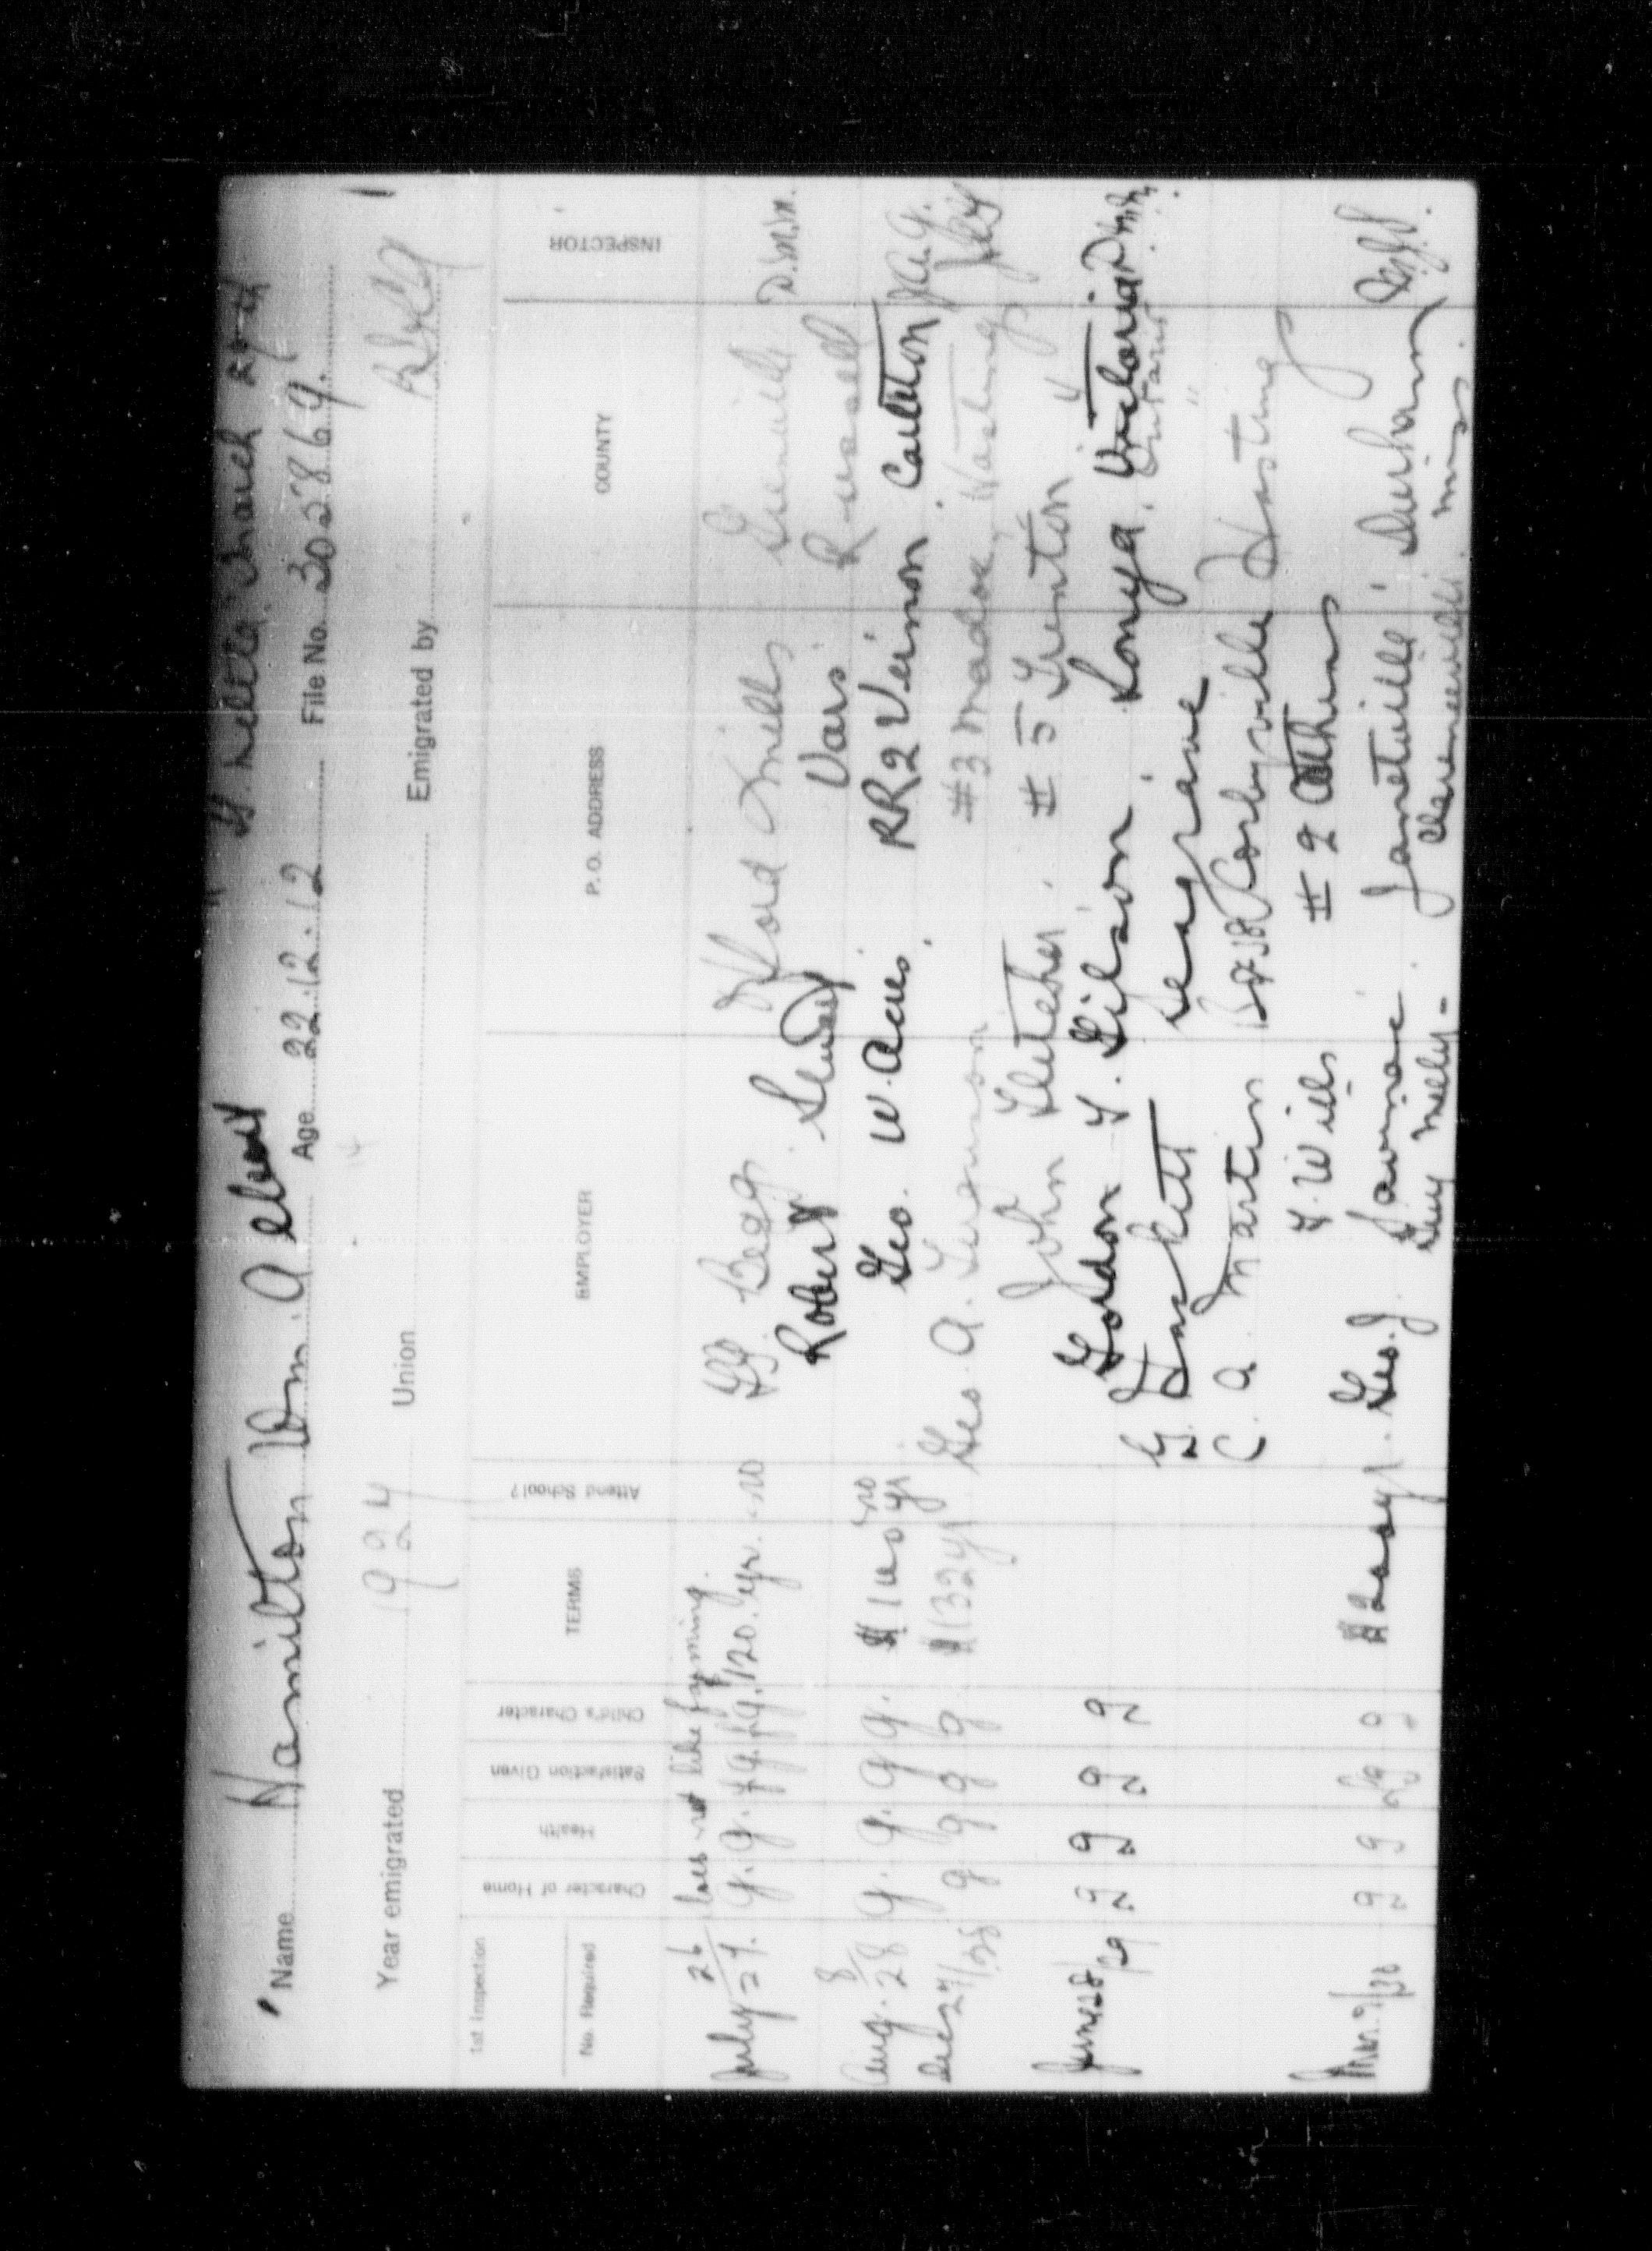 Name Hamilton Wm. Albert Age 22.12.12 File No. 302869.
Year emigrated 1924 Union Emigrated by
1st Inspection
No. Required
Character of Home
Health
Satisfaction Given
Child's Character
TERMS
Attend School?
EMPLOYER
P.O. ADDRESS
COUNTY
INSPECTOR
does not like farming.
July 26/27. g. g. fg. fg. 120. yr. no Begg Hord Mills Grenville D.M.M.
Robert Vars Russell
Aug. 8/28 g. g. g. g. no Geo. W. Acres. RR2 Vernon Carleton
Dec 27/28 g g g g $132 yr Geo. A. Ferguson #3 Madoc, Hastings
John Fletcher. #5 Trenton "
June 28/29 g g g g Gordon Gilson Sonya, Victoria
G. Haskett Seagrave Ontario "
C. A. Martin Corbyville Hastings
Wills #2 Athens
g g g g Geo. J. Janetville Durham
Guy Melly-